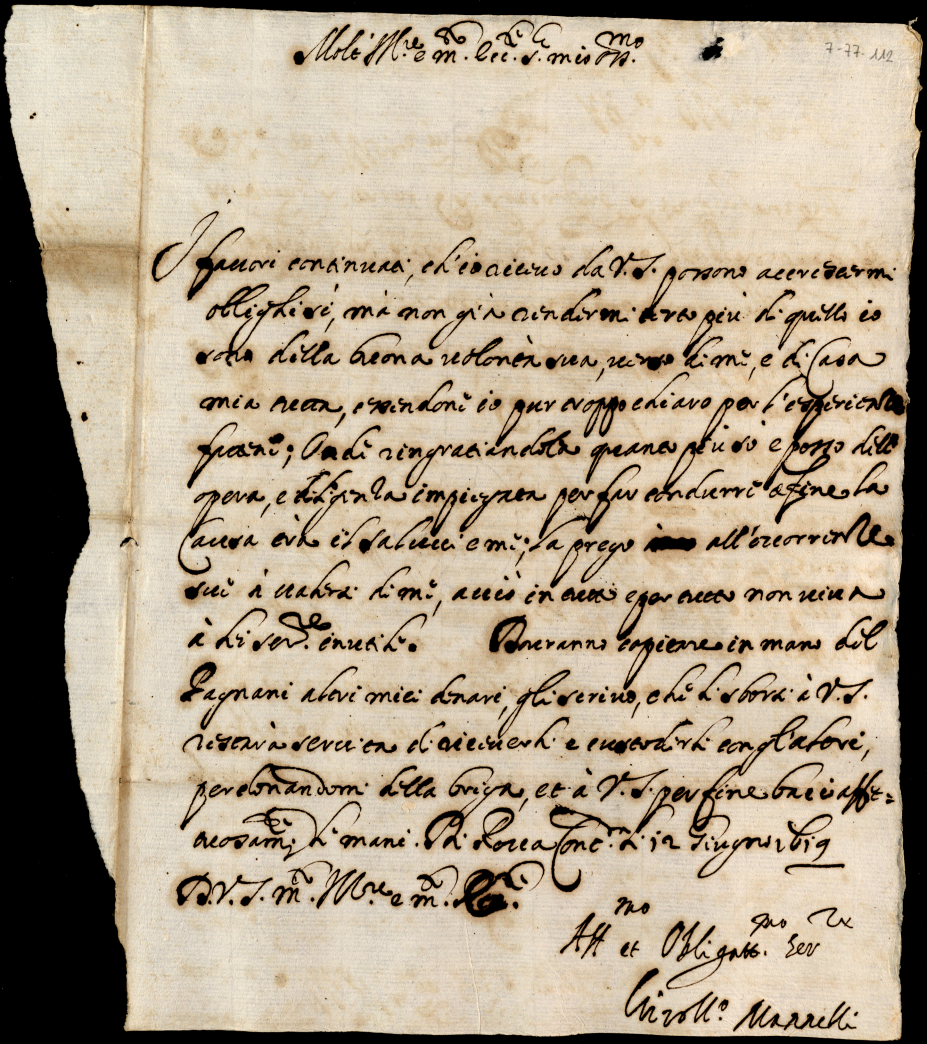 Molt' Ill.re e m.to Ecc.te S. mio oss.mo
7-77-112
I fauori continuati, ch'io riceuo da V.S. possono accrescermi
oblighi sì, mà non già rendermi certo più di quello io
sono della buona uolontà sua, uerso di me, e di Casa
mia tutta, essendone io pur troppo chiaro per l'esperienze
fattene; Onde ringratiandola quanto più sò e posso dell'
opera, e diligenza impiegata per far condurre à fine la
Causa trà il Salucci e me; la prego all'occorrenze
sue à ualersi di me, acciò in tutto e per tutto non uiua
à lei ser.re inutile. Doueranno capitare in mano del
Pagnani altri miei denari, gli scriuo, che li sborsi à V.S.
restarà seruita di riceuerli e custodirli con gl'altri,
perdonandomi della briga, et à V.S. per fine bacio affet=
tuosam.te li mani. Di Rocca Cont.ta li 12 Giugno 1619
D.V.S. m.to Ill.re e m.to
Aff.mo et Obligatt.mo Ser.re
Mannelli